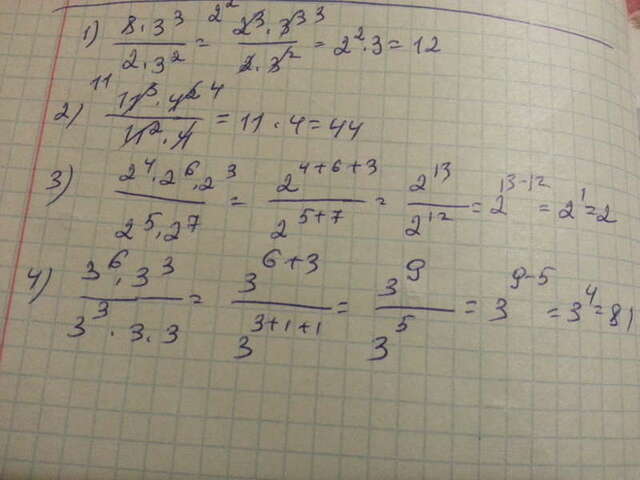 1) 8·3³/2·3² = 2² 2³·3³ 3/2·3² = 2²·3 = 12
2) 11 11³·4² 4/11²·4 = 11·4 = 44
3) 2⁴·2⁶·2³/2⁵·2⁷ = 2⁴⁺⁶⁺³/2⁵⁺⁷ = 2¹³/2¹² = 2¹³⁻¹² = 2¹ = 2
4) 3⁶·3³/3³·3·3 = 3⁶⁺³/3³⁺¹⁺¹ = 3⁹/3⁵ = 3⁹⁻⁵ = 3⁴ = 81